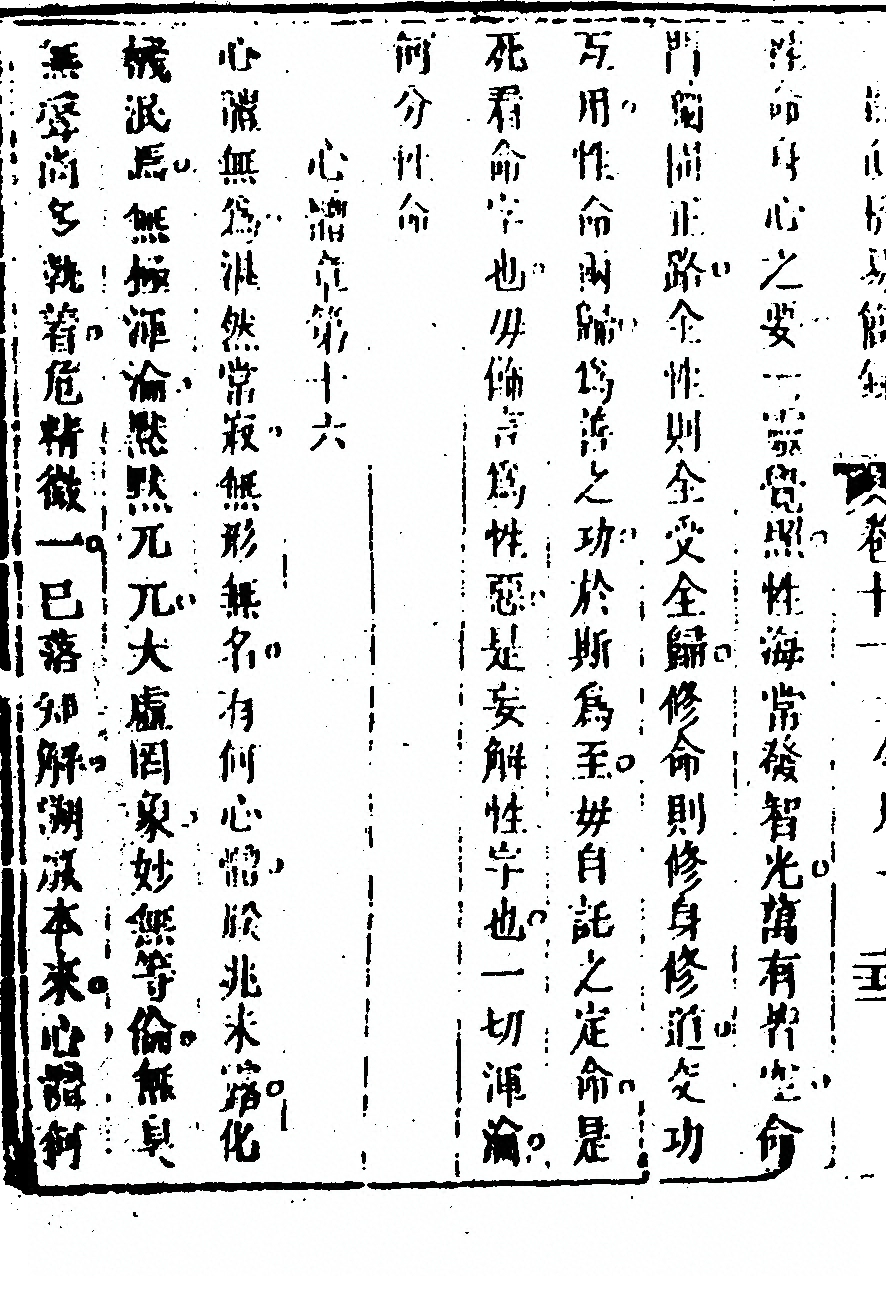 卷十一
性命身心之要一靈覺照性海常發智光萬有皆空命
門獨闢正路全性則全受全歸修命則修身修道交功
互用性命兩歸為善之功於斯為至毋自託之定命是
死看命字也毋偏言為性惡是妄解性字也一切渾淪
何分性命
心體章第十六
心體無為湛然常寂無形無名有何心體朕兆未露化
機泯焉無極渾淪默默兀兀大虛罔象妙無等倫無臭
無聲尚多執着危精微一已落知解溯厥本來心體何